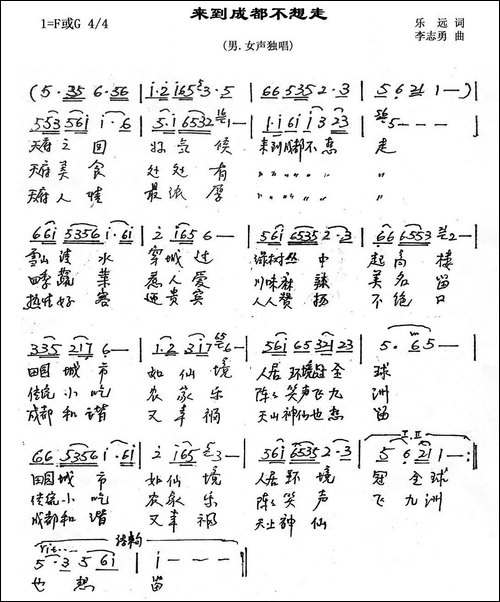 来到成都不想走
1=F或G 4/4
(男.女声独唱)
乐 远 词
李志勇 曲
(5·35 6·56 | i·2 i65 3·5 | 66 535 2·3 | 5 6 21 1-)|
553 56i i·6 | 5·i 6532 1- | 1·i 6i i 3 23 | 5---|
天府之国 好气候 来到成都不想 走
天府美食 处处有 〃〃〃〃〃 〃
天府人情 最浓厚 〃〃〃〃〃 〃
66i 5356 i·6i | 2· i65 6- | 56i 6535 2·3 | 66 6553 2- |
雪山流水 穿城过 绿树丛中 起高楼
四季蔬菜 惹人爱 川味麻辣 美名留
热情好客 迎贵宾 人人赞扬 不绝口
335 217 6- | 1·2 3i7 6- | 56i 65 32i 23 | 5·65- |
田园城市 如仙境 人居环境冠全 球
传统小吃 农家乐 阵阵笑声飞九 洲
成都和谐 又幸福 天上神仙也想 留
66 5356 i-6i | 2· i65 3- | 56i 6535 2·3 | 5 6 21 1-:|
田园城市 如仙境 人居环境 冠全球
传统小吃 农家乐 阵阵笑声 飞九洲
成都和谐 又幸福 天上神仙
I.II
rit... 结构
5·3 5 6i | i---‖
也想 留